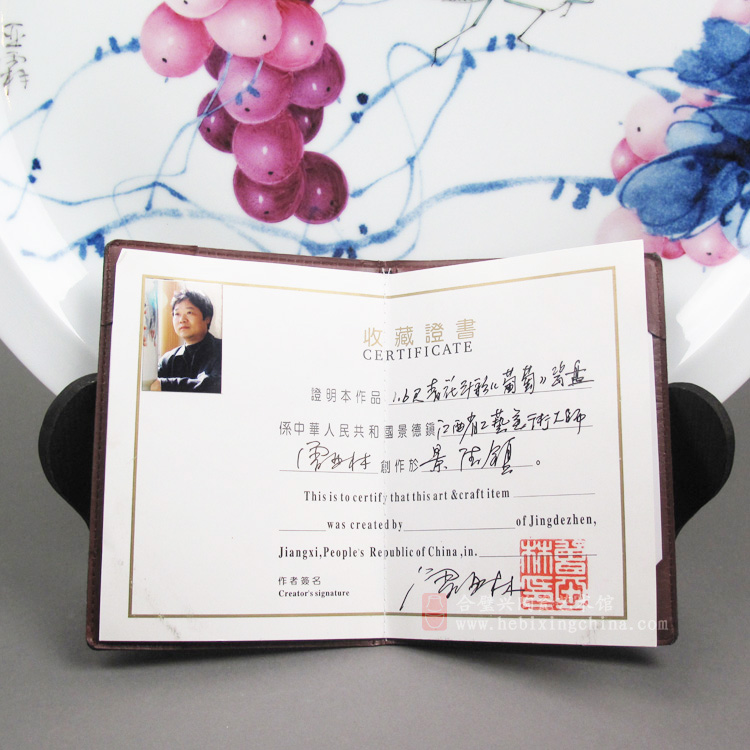 亚林
收藏證書
CERTIFICATE
證明本作品 1.6尺青花斗彩《葡萄》瓷盘
係中華人民共和國景德鎮 江西省工藝美術大師
创作於 景德镇 。
This is to certify that this art & craft item
was created by of Jingdezhen,
Jiangxi,People's Republic of China,in.
作者簽名
Creator's signature
合璧兴 馆
www.hebixingchina.com